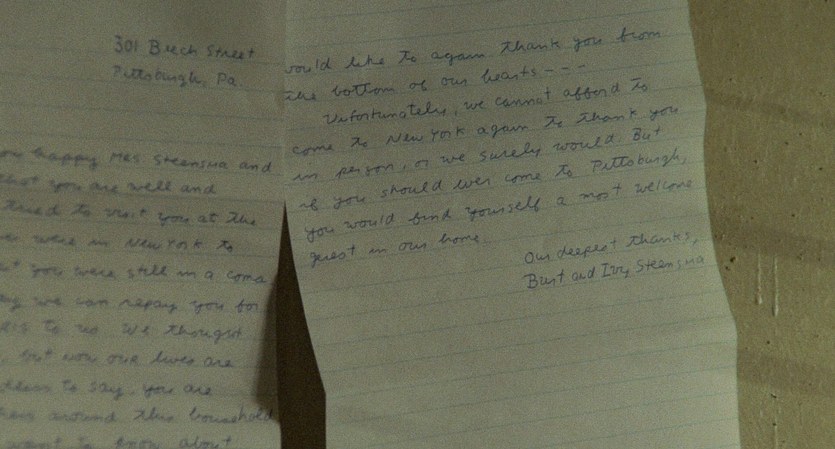 301 Beech Street
Pittsburgh, Pa.
happy Mrs Steensma and
that you are well and
tried to visit you at the
were in New York to
you were still in a coma
we can repay you for
to us. We thought
but now our lives are
to say, you are
around this household
want to know about
would like to again thank you from
the bottom of our hearts - - -
Unfortunately, we cannot afford to
come to New York again to thank you
in person, or we surely would. But
if you should ever come to Pittsburgh,
you would find yourself a most welcome
guest in our home.
Our deepest thanks,
Burt and Ivy Steensma